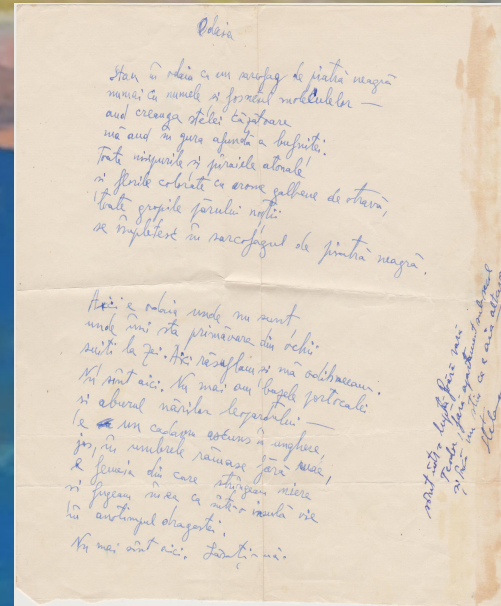 Odaia
Stau în odaia ca un sarcofag de piatră neagră
numai cu numele și foșnetul moleculelor —
aud creanga stelei căzătoare
mă aud în gura afundă a bufniței.
Toate nisipurile și pîraiele atonale
și florile colorate ca arome galbene de otravă,
toate gropile țărului nopții
se împletesc în sarcofagul de piatră neagră.
Aici e odaia unde nu sunt
unde îmi sta primăvara din ochii
suiți la zei. Aici răsuflam și mă odihneam.
Nu sînt aici. Nu mai am buzele portocale
și aburul nărilor leopardului —
e un cadavru ascuns a unghere
jos, în umbrele rămase fără mine,
e femeia din care strîngeam miere
și fugeam în ea ca într-o insulă vie
în anotimpul dragostei.
Nu mai sînt aici.
sînt într-o luptă fără
și fără